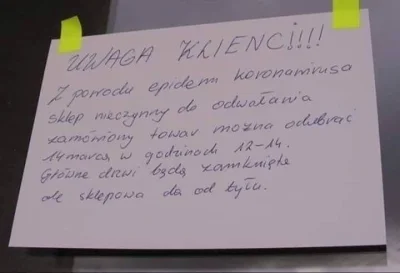 UWAGA KLIENCI!!!!
Z powodu epidemi koronawirusa
sklep nieczynny do odwołania
zamówiony towar można odebrać
14 marca w godzinach 12-14.
Główne drzwi będą zamknięte
ale sklepowa da od tyłu.